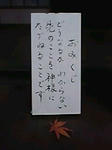 おみくじ
どうなるか わからない
先のことを神様に
たずねることです